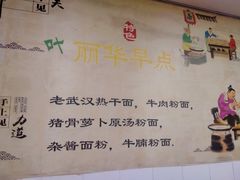 特色
叶
丽华早点
老武汉热干面，牛肉粉面，
猪骨萝卜原汤粉面，
杂酱面粉，牛腩粉面.
手上见